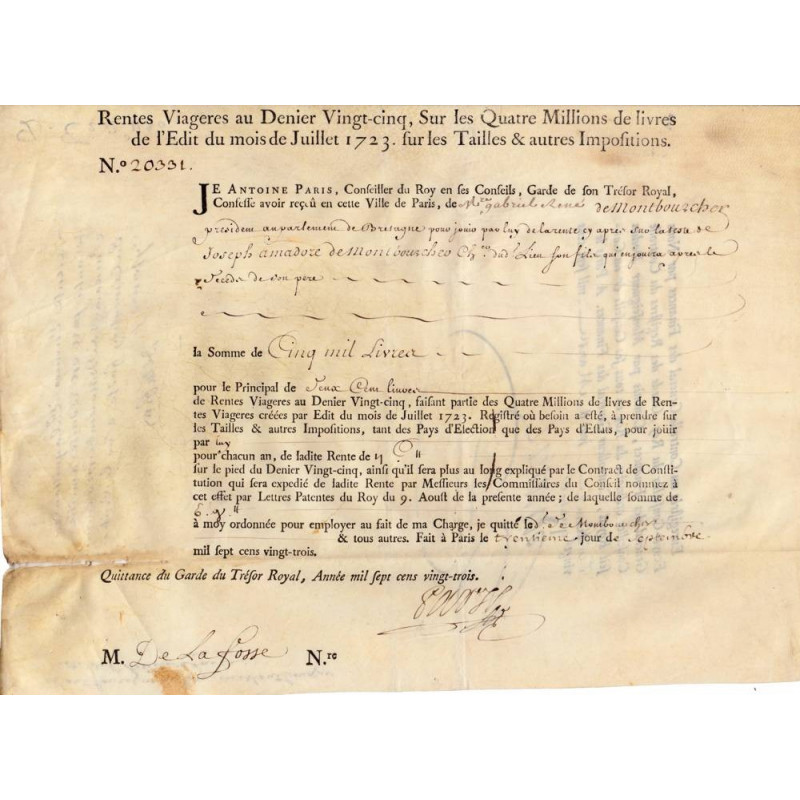 Rentes Viageres au Denier Vingt-cinq, Sur les Quatre Millions de livres
de l'Edit du mois de Juillet 1723. sur les Tailles & autres Impositions.
N.º 20331.
JE ANTOINE PARIS, Conseiller du Roy en ses Conseils, Garde de son Trésor Royal,
Confesse avoir reçû en cette Ville de Paris, de Mre. gabriel René de Montbourcher
president au parlement de Bretagne pour jouir par luy de la rente cy apres sur la teste de
Joseph amador de Montbourcher Ch.er dud. Lieu son fils qui en jouira après le
Deceds de son père
la Somme de Cinq mil Livres
pour le Principal de Deux Cens livres
de Rentes Viageres au Denier Vingt-cinq, faisant partie des Quatre Millions de livres de Ren-
tes Viageres créées par Edit du mois de Juillet 1723. Registré où besoin a esté, à prendre sur
les Tailles & autres Impositions, tant des Pays d'Election que des Pays d'Estats, pour jouir
par luy
pour chacun an, de ladite Rente de ij C ll
sur le pied du Denier Vingt-cinq, ainsi qu'il sera plus au long expliqué par le Contract de Consti-
tution qui sera expedié de ladite Rente par Messieurs les Commissaires du Conseil nommez à
cet effet par Lettres Patentes du Roy du 9. Aoust de la presente année; de laquelle somme de
à moy ordonnée pour employer au fait de ma Charge, je quitte led. S. de Montbourcher
& tous autres. Fait à Paris le trentieme jour de Septembre
mil sept cens vingt-trois.
Quittance du Garde du Trésor Royal, Année mil sept cens vingt-trois.
Paris
M. De La fosse N.re